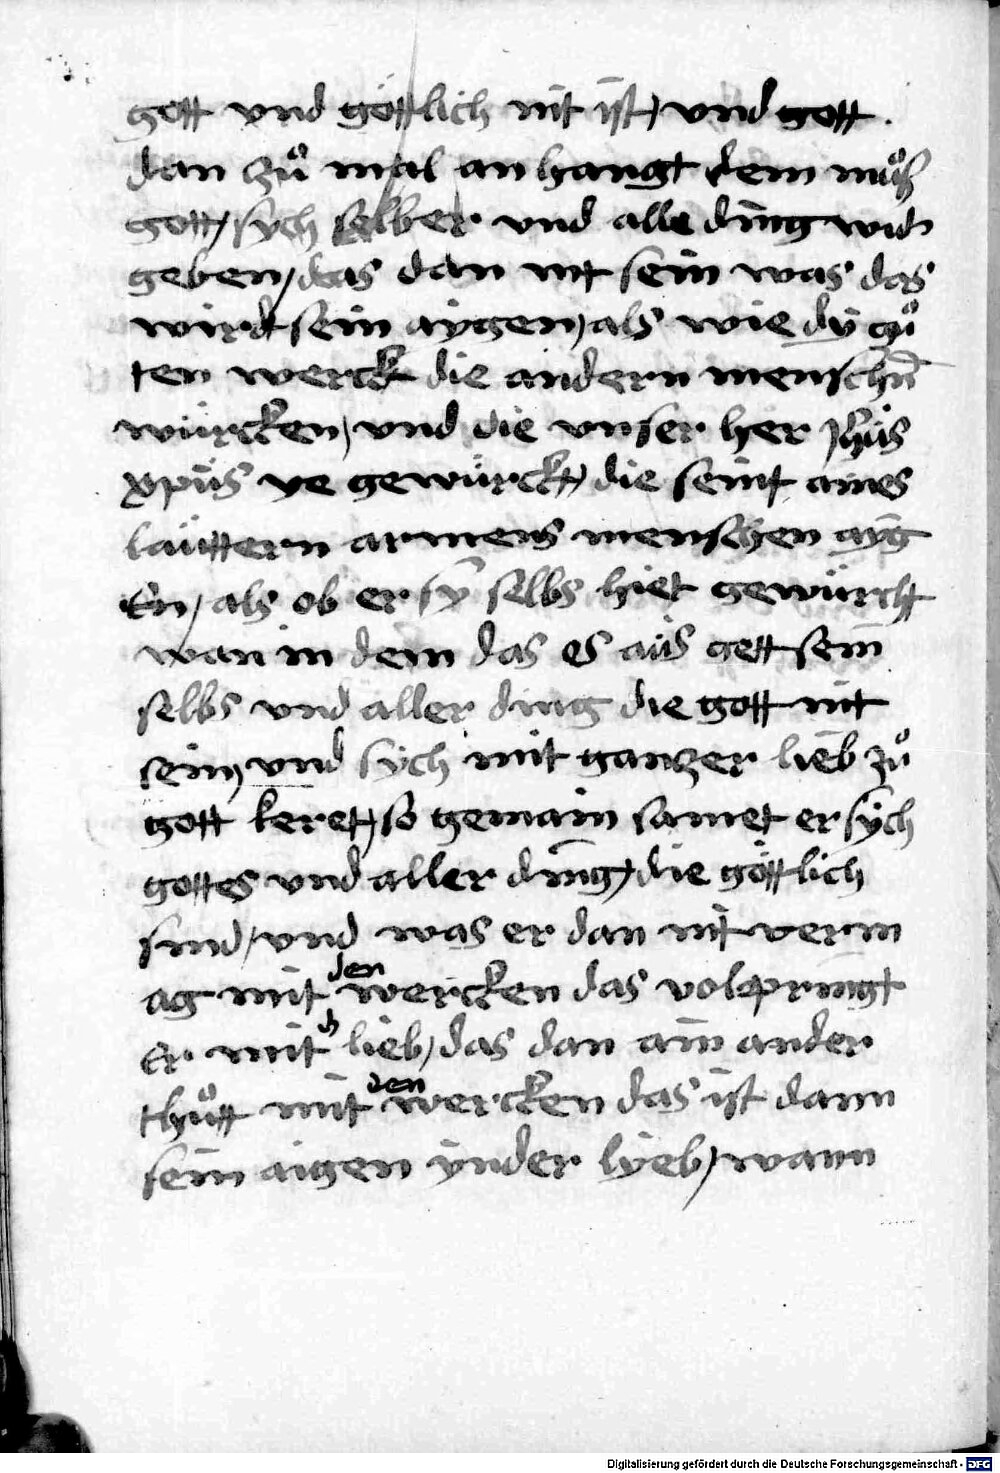 gott vnd göttlich nit ist, vnd gott
dan zuͦ mal an hangt dem muͦß
gott, sych selber vnd alle ding wid
geben, das dan nit sein was das
wirdt sein aygen, als wie dy guͦ
ten werck die andern menschn̄
würcken, vnd die vnser her Jhüs
xpüs ye gewürckt, die seint aines
laüttern armens menschen ayḡ
En, als ob er sy selbs hiet gewürcht
wan in dem das es aüs gett sein
selbs vnd aller ding die gott nit
sein, vnd sych mit ganzer lieb zuͦ
gott keret, so gemain samet er sych
gottes vnd aller ding, die göttlich
sind, vnd was er dan nit verm
ag mit den wercken das volpringt
Er mit d lieb, das dan ain ander
thuͦtt mit den wercken das ist dann
sein aigen ynder lyeb, wann
Digitalisierung gefördert durch die Deutsche Forschungsgemeinschaft - DFG